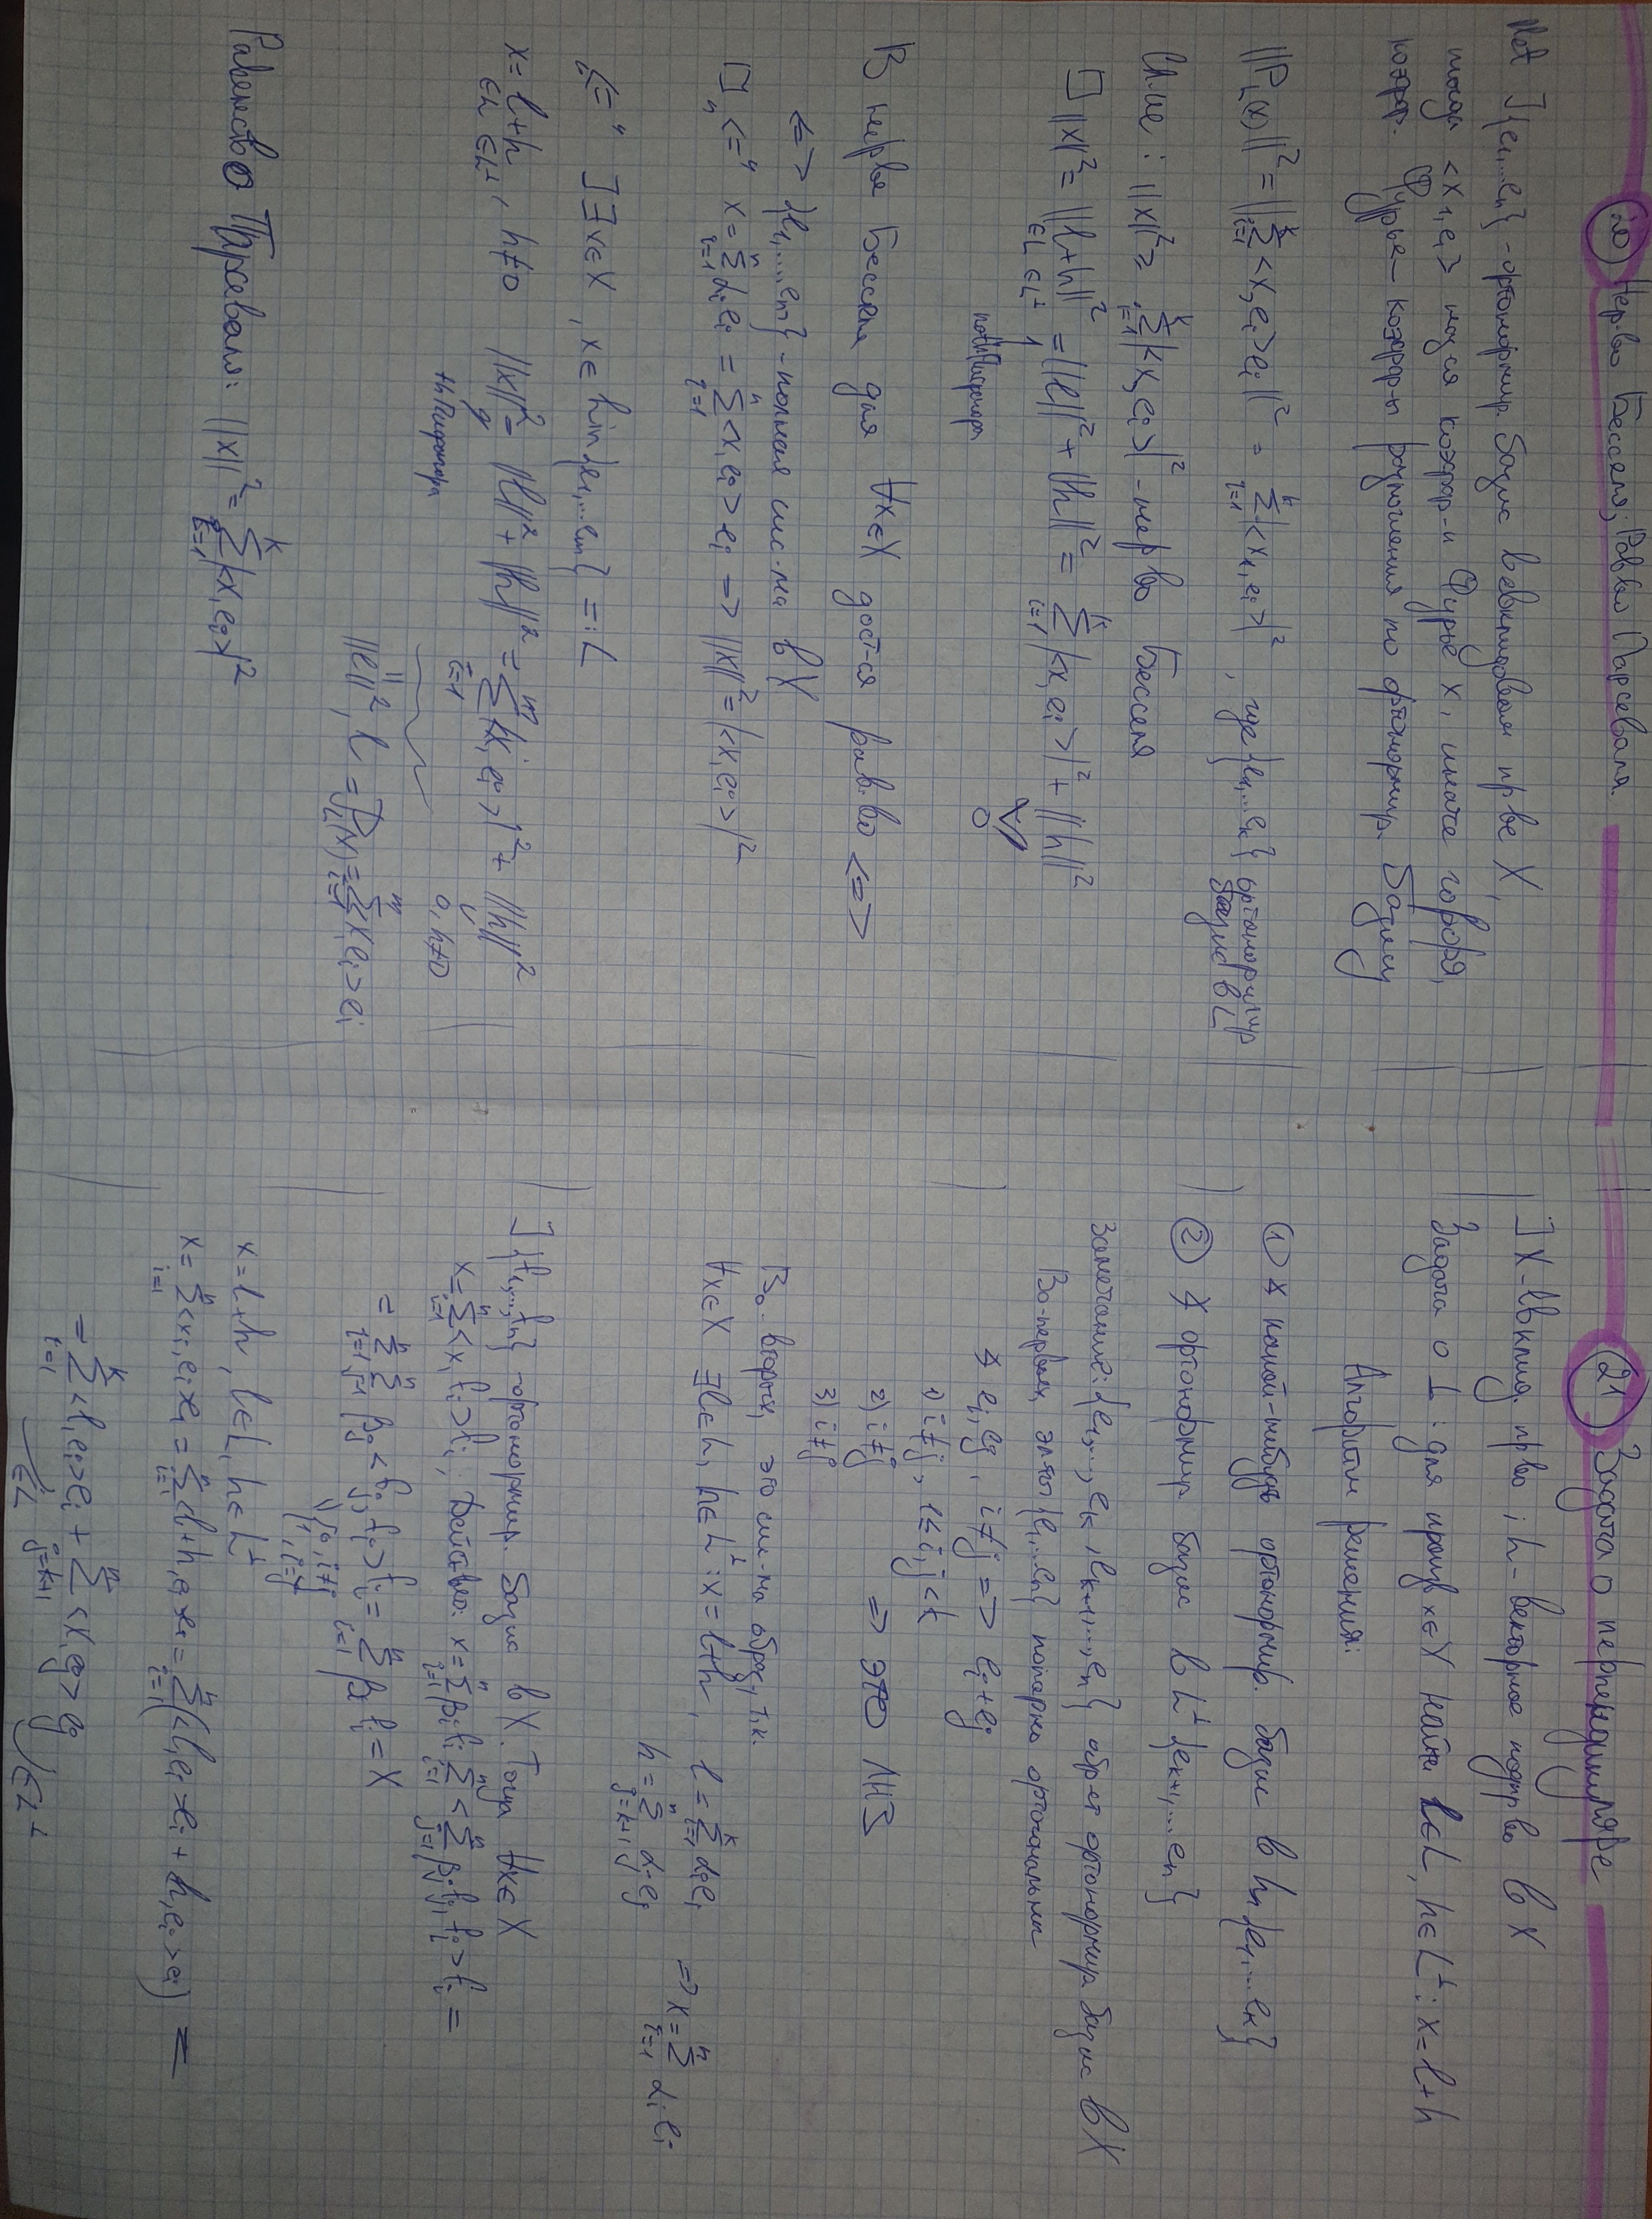 20 Нер-во Бесселя, Рав-во Парсеваля.
Not ] {e₁,...eₙ} - ортонормир. базис в евклидовом пр-ве X,
тогда <x₁,eᵢ> наз-ся коэфф-и Фурье x, иначе говоря,
коэфф. Фурье - коэфф-ры разложения по ортонормир. базису
||P_L(x)||² = ||∑ᵢ₌₁ᵏ <x,eᵢ>eᵢ||² = ∑ᵢ₌₁ᵏ |<x₁,eᵢ>|², где {e₁,...eₖ} ортонормир базис в L
: ||x||² ≥ ∑ᵢ₌₁ᵏ |<x,eᵢ>|² - нер-во Бесселя
□ ||x||² = ||l+h||² = ||l||² + ||h||² = ∑ᵢ₌₁ᵏ |<x,eᵢ>|² + ||h||²
∈L ∈L⊥
Пифагора
≥ 0
В нер-ве Бесселя для ∀x∈X дост-ся рав-во <=>
<=> {e₁,...,eₘ} - полная сис-ма в X
□ "<=" x = ∑ᵢ₌₁ⁿ αᵢeᵢ = ∑ᵢ₌₁ⁿ <x,eᵢ>eᵢ => ||x||² = |<x,eᵢ>|²
"<=" ] ∃x∈X, x∈ Lin{e₁,...eₘ} =: L
x = l+h, h≠0 ||x||² = ||l||² + ||h||² = ∑ᵢ₌₁ᵐ |<x,eᵢ>|² + ||h||²
∈L ∈L⊥
т. Пифагора
0, h≠0
||l||², l = P_L(x) = ∑ᵢ₌₁ᵐ <x,eᵢ>eᵢ
Равенство Парсеваля: ||x||² = ∑ᵢ₌₁ᵏ |<x,eᵢ>|²
21 Задача о перпендикуляре
] X - евклид. пр-во; L - векторное подпр-во в X
Задача о ⊥: для произв x∈X найти l∈L, h∈L⊥: x=l+h
Алгоритм решения:
① ∢ какой-нибудь ортонормир. базис в L {e₁,...eₖ}
② ∢ ортонормир базис в L⊥ {eₖ₊₁,...eₙ}
Замечание: {e₁,..., eₖ, eₖ₊₁,..., eₙ} образ-ет ортонормир базис в X
Во-первых, эл-ты {e₁,...eₙ} попарно ортогональны
∢ eᵢ, eⱼ, i≠j => eᵢ⊥eⱼ
1) i≠j, 1≤i,j<k
2) i≠j => это ЛНЗ
3) i≠j
Во-вторых, это сис-ма образ, т.к.
∀x∈X ∃l∈L, h∈L⊥: x=l+h, l = ∑ᵢ₌₁ᵏ αᵢeᵢ
h = ∑ⱼ₌ₖ₊₁ⁿ αⱼeⱼ => x = ∑ᵢ₌₁ⁿ αᵢeᵢ
] {f₁,...,fₙ} - ортонормир. базис в X. Тогда ∀x∈X
x = ∑ᵢ₌₁ⁿ <x,fᵢ>fᵢ; Действ-но: x = ∑ᵢ₌₁ⁿ βᵢfᵢ ∑ᵢ₌₁ⁿ <∑ⱼ₌₁ⁿ βⱼfⱼ, fᵢ>fᵢ =
= ∑ᵢ₌₁ⁿ ∑ⱼ₌₁ⁿ βⱼ<fⱼ,fᵢ>fᵢ = ∑ᵢ₌₁ⁿ βᵢfᵢ = x
{0, i≠j
1, i=j
x = l+h, l∈L, h∈L⊥
x = ∑ᵢ₌₁ⁿ <x,eᵢ>eᵢ = ∑ᵢ₌₁ⁿ <l+h,eᵢ>eᵢ = ∑ᵢ₌₁ⁿ (<l,eᵢ>eᵢ + <h,eᵢ>eᵢ) =
= ∑ᵢ₌₁ᵏ <l,eᵢ>eᵢ + ∑ⱼ₌ₖ₊₁ⁿ <x,eⱼ>eⱼ
∈L ∈L⊥